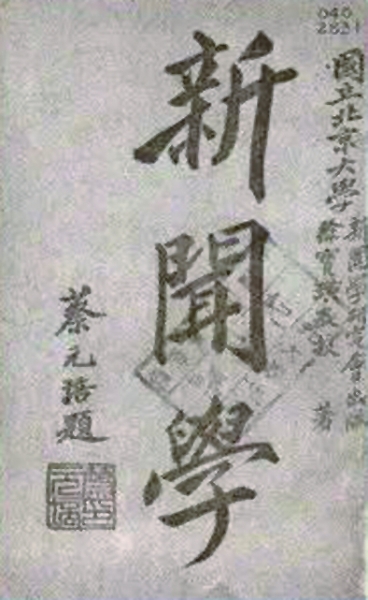 040
國立北京大學
新聞學研究會出版
徐寶璜教授 著
新聞學
蔡元培題